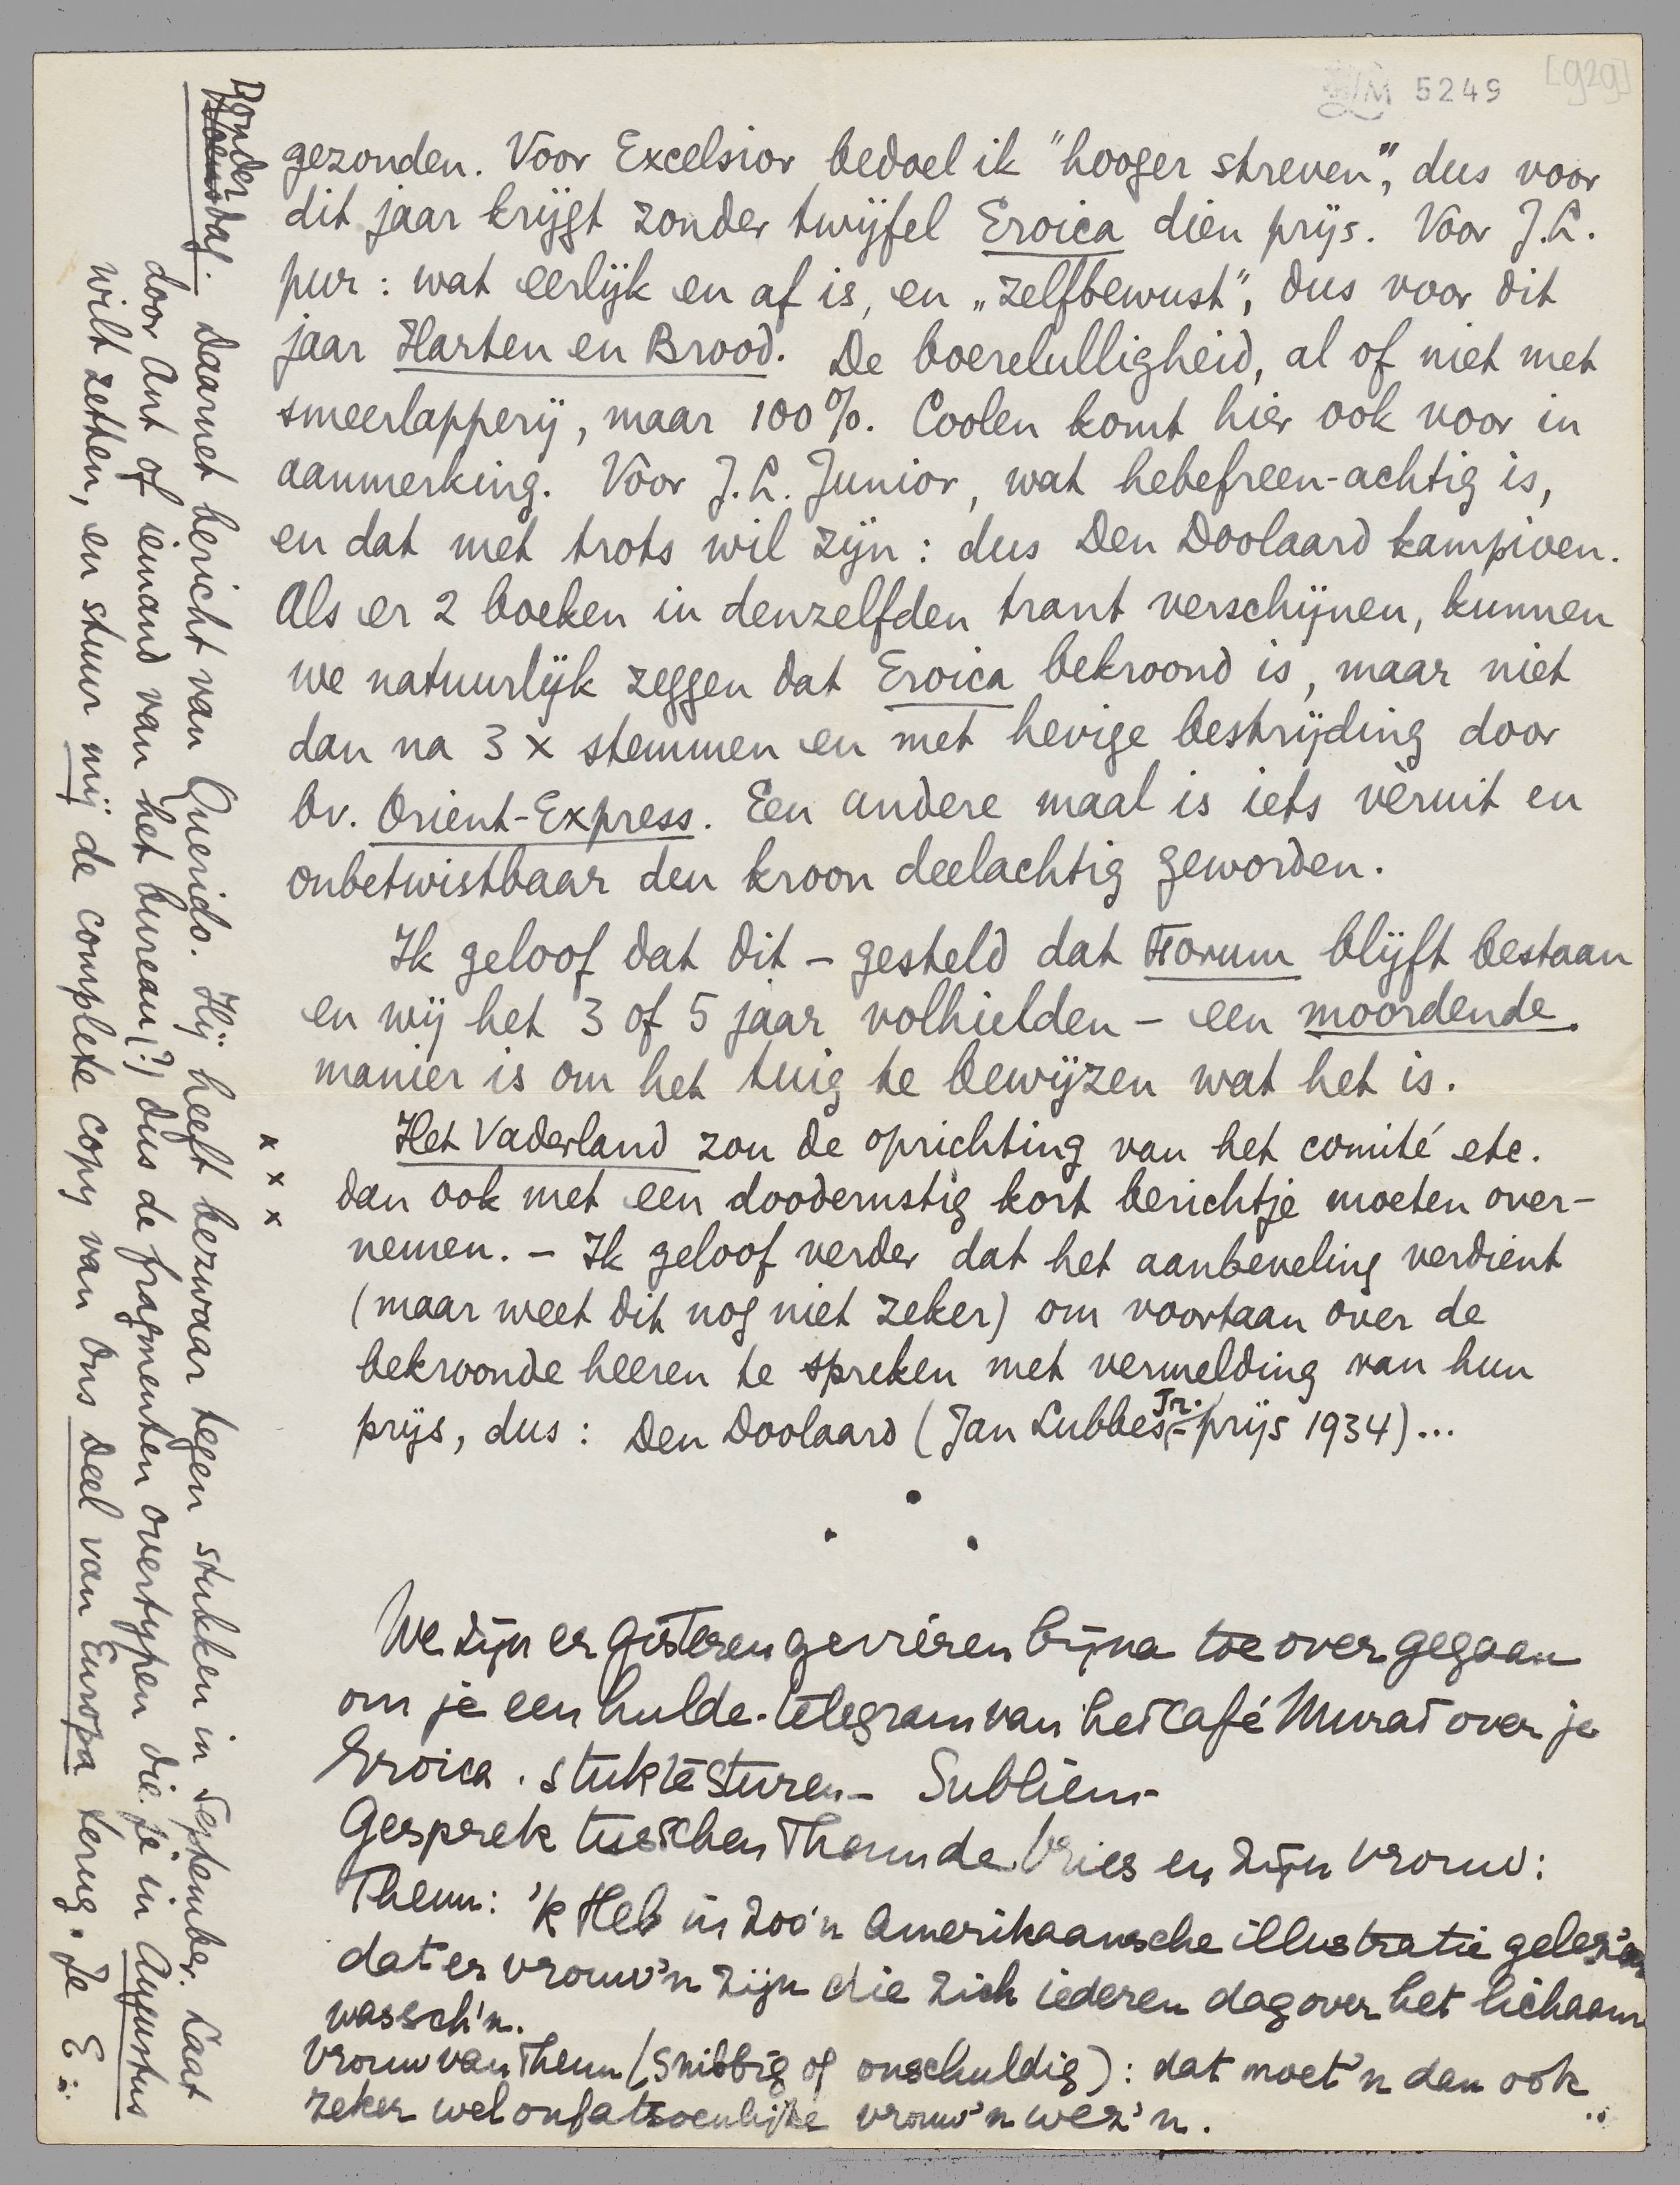 LM 5249 [929]
gezonden. Voor Excelsior bedoel ik "hooger streven", dus voor
dit jaar krijgt zonder twijfel Eroica dien prijs. Voor J.L.
pur: wat eerlijk en af is, en „zelfbewust", dus voor dit
jaar Harten en Brood. De boerelulligheid, al of niet met
smeerlapperij, maar 100%. Coolen komt hier ook voor in
aanmerking. Voor J.L. Junior, wat hebefreen-achtig is,
en dat met trots wil zijn: dus Den Doolaard kampioen.
Als er 2 boeken in denzelfden trant verschijnen, kunnen
we natuurlijk zeggen dat Eroica bekroond is, maar niet
dan na 3 x stemmen en met hevige bestrijding door
bv. Orient-Express. Een andere maal is iets vèruit en
onbetwistbaar den kroon deelachtig geworden.
Ik geloof dat dit – gesteld dat Forum blijft bestaan
en wij het 3 of 5 jaar volhielden – een moordende
manier is om het tuig te bewijzen wat het is.
Het Vaderland zou de oprichting van het comité etc.
dan ook met een doodernstig kort berichtje moeten over-
nemen. – Ik geloof verder dat het aanbeveling verdient
(maar weet dit nog niet zeker) om voortaan over de
bekroonde heeren te spreken met vermelding van hun
prijs, dus: Den Doolaard (Jan Lubbes Jr.-prijs 1934)...
We zijn er gisteren gevieren bijna toe overgegaan
om je een hulde-telegram van het Café Murat over je
Eroica-stuk te sturen – Subliem –
Gesprek tusschen Theun de Vries en zijn vrouw:
Theun: 'k Heb in zoo'n Amerikaansche illustratie gelez'n
dat er vrouw'n zijn die zich iederen dag over het lichaam
wassch'n.
Vrouw van Theun (snibbig of onschuldig): dat moet'n dan ook
zeker wel onfatsoenlijke vrouw'n wez'n.
x x x
Donderdag. Daarnet bericht van Querido. Hij heeft bezwaar tegen stukken in September. Laat
door Ant of iemand van het bureau (?) dus de fragmenten overtypen die je in Augustus
wilt zetten, en stuur mij de complete copy van Ons deel van Europa terug. Je E.